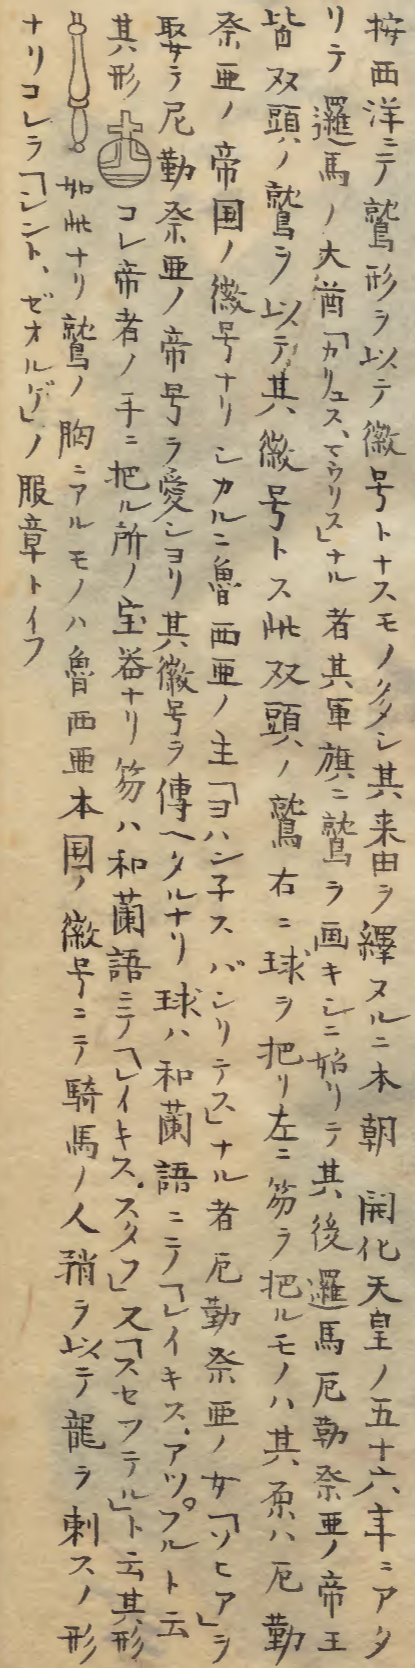 按西洋ニテ鷲形ヲ以テ徽号トナスモノ多シ其来由ヲ繹ヌルニ本朝 開化天皇ノ五十六年ニアタ
リテ邏馬ノ大酋「カリュス、マウリス」ナル者其軍旗ニ鷲ヲ画キシニ始リテ其後邏馬厄勒祭亜ノ帝王
皆双頭ノ鷲ヲ以テ其徽号トス此双頭ノ鷲右ニ球ヲ把リ左ニ笏ヲ把ルモノハ其原ハ厄勒
祭亜ノ帝国ノ徽号ナリシカルニ魯西亜ノ主「ヨハン子スバシリデス」ナル者厄勒祭亜ノ女「ソヒア」ヲ
娶テ厄勒祭亜ノ帝号ヲ愛シヨリ其徽号ヲ傳ヘタルナリ球ハ和蘭語ニテ「レイキス、アップルト云
其形 コレ帝者ノ手ニ把ル所ノ宝器ナリ笏ハ和蘭語ニテ「レイキス、スタフ」又「スセフテル」ト云其形
如此ナリ鷲ノ胸ニアルモノハ魯西亜本国ノ徽号ニテ騎馬ノ人矟ヲ以テ龍ヲ刺スノ形
ナリコレヲ「シント、ゼオルゲ」ノ服章トイフ